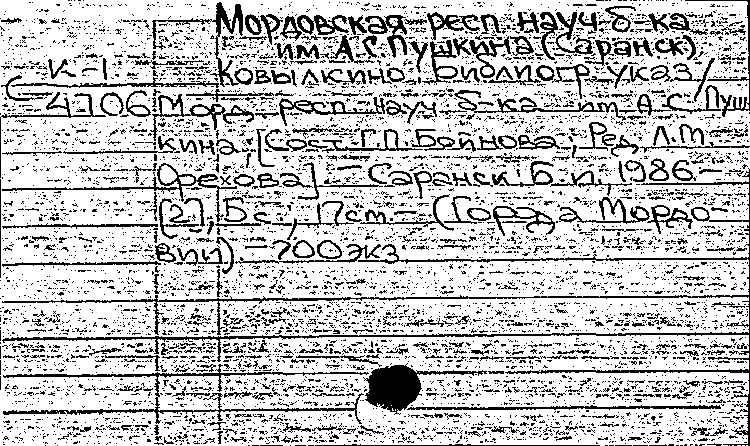 Мордовская респ. науч. б-ка
им. А.С. Пушкина (Саранск).
К-1 Ковылкино: Библиогр. указ. /
4706 Морд. респ. науч. б-ка им. А.С. Пуш-
кина; [Сост. Г.П. Бойнова; Ред. Л.М.
Орехова]. – Саранск: Б.и., 1986. –
[2], 5 с.; 17 см. – (Города Мордо-
вии). – 700 экз.